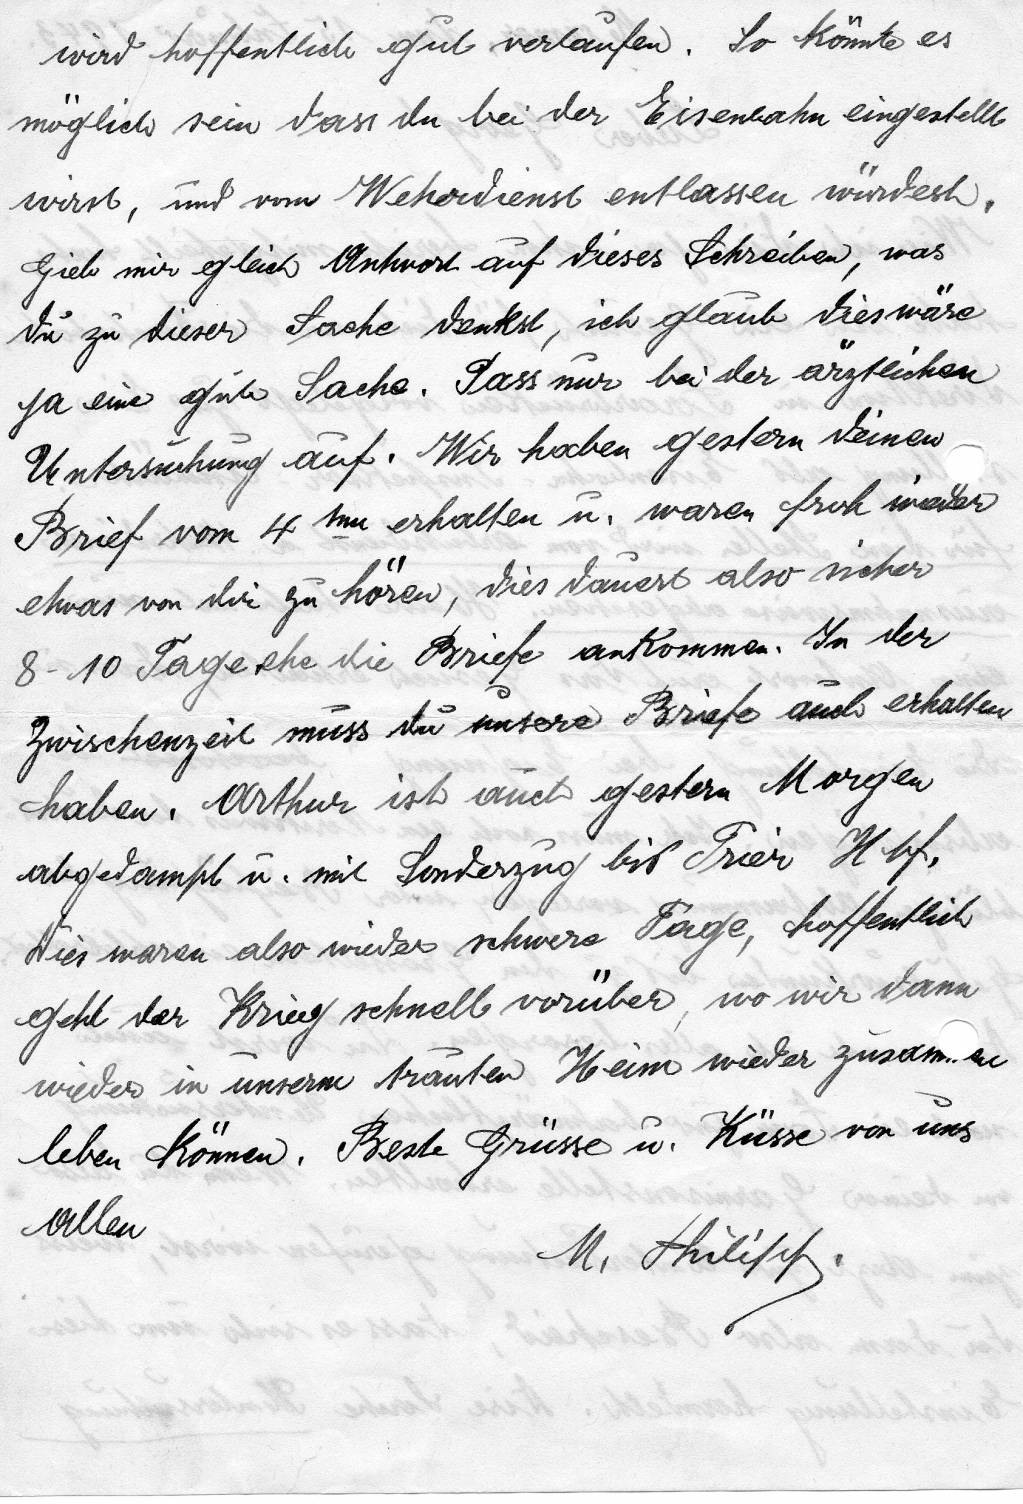 wird hoffentlich gut verlaufen. So könnte es
möglich sein dass du bei der Eisenbahn eingestellt
wirst, und vom Wehrdienst entlassen würdest.
Gieb mir gleich Antwort auf dieses Schreiben, was
du zu dieser Sache denkst, ich glaub dies wäre
ja eine gute Sache. Pass nur bei der ärztlichen
Untersuchung auf. Wir haben gestern deinen
Brief vom 4 ten erhalten u. waren froh wieder
etwas von dir zu hören, dies dauert also sicher
8-10 Tage ehe die Briefe ankommen. In der
Zwischenzeit muss du unsere Briefe auch erhalten
haben. Arthur ist auch gestern Morgen
abgedampft u. mit Sonderzug bis Trier Hbf.
Dies waren also wieder schwere Tage, hoffentlich
geht der Krieg schnell vorüber, wo wir dann
wieder in unserm trauten Heim wieder zusammen
leben können. Beste Grüsse u. Küsse von uns
Allen
M. Philipp.